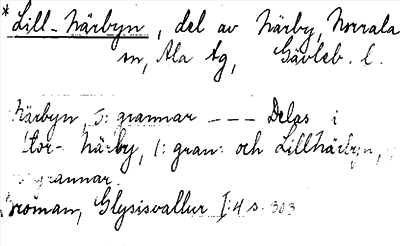 * Lill-Närbyn, del av Närby, Norrala
sn, Ala tg, Gävleb. l.
Närbyn, 5: grannar --- Delas i
Stor-Närby, 1: gran: och Lillnärbyn,
grannar.
Broman, Glysisvallur I:4 s. 303